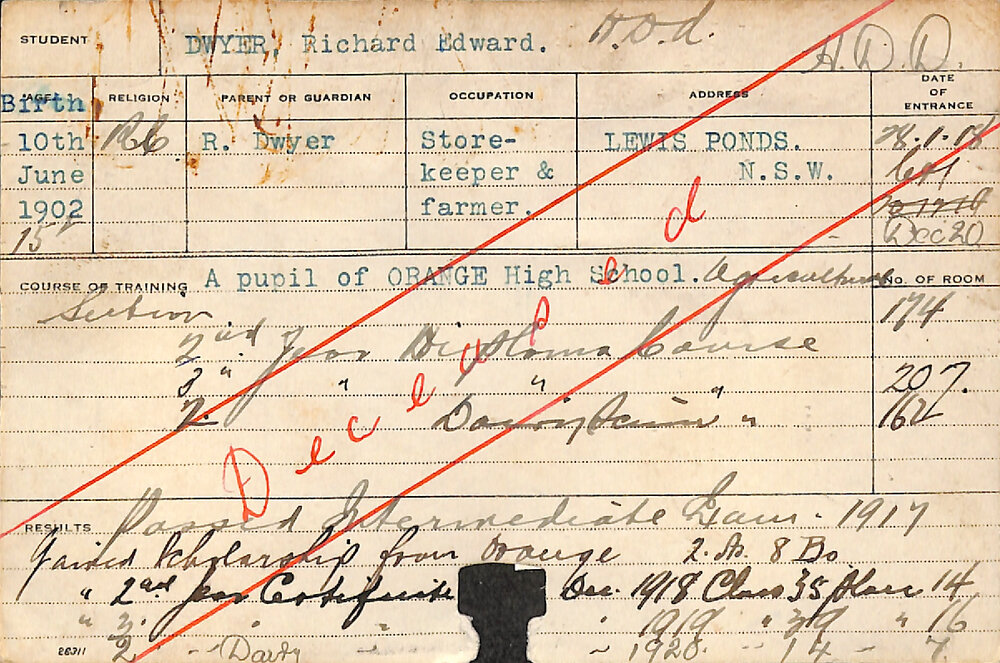 STUDENT DWYER, Richard Edward. H.D.A. H.D.D.
AGE Birth RELIGION PARENT OR GUARDIAN OCCUPATION ADDRESS DATE OF ENTRANCE
10th RC R. Dwyer Store- LEWIS PONDS. 28.1.18
June keeper & N.S.W. left
1902 farmer.
15 Dec 20
COURSE OF TRAINING A pupil of ORANGE High School. Agricultural No. OF ROOM
Section 174
2nd Year Diploma Course
3 " " " " 207.
2. Dairy "  162
Deceased
RESULTS Passed Intermediate Exam. 1917
Gained Scholarship from Orange 2. As. 8 Bs
" 2nd Year Certificate Dec. 1918 Class 35 Place 14
" 3. " " 1919 " 39 " 16
2 " Dairy " 1920 " 14 - 7
28311